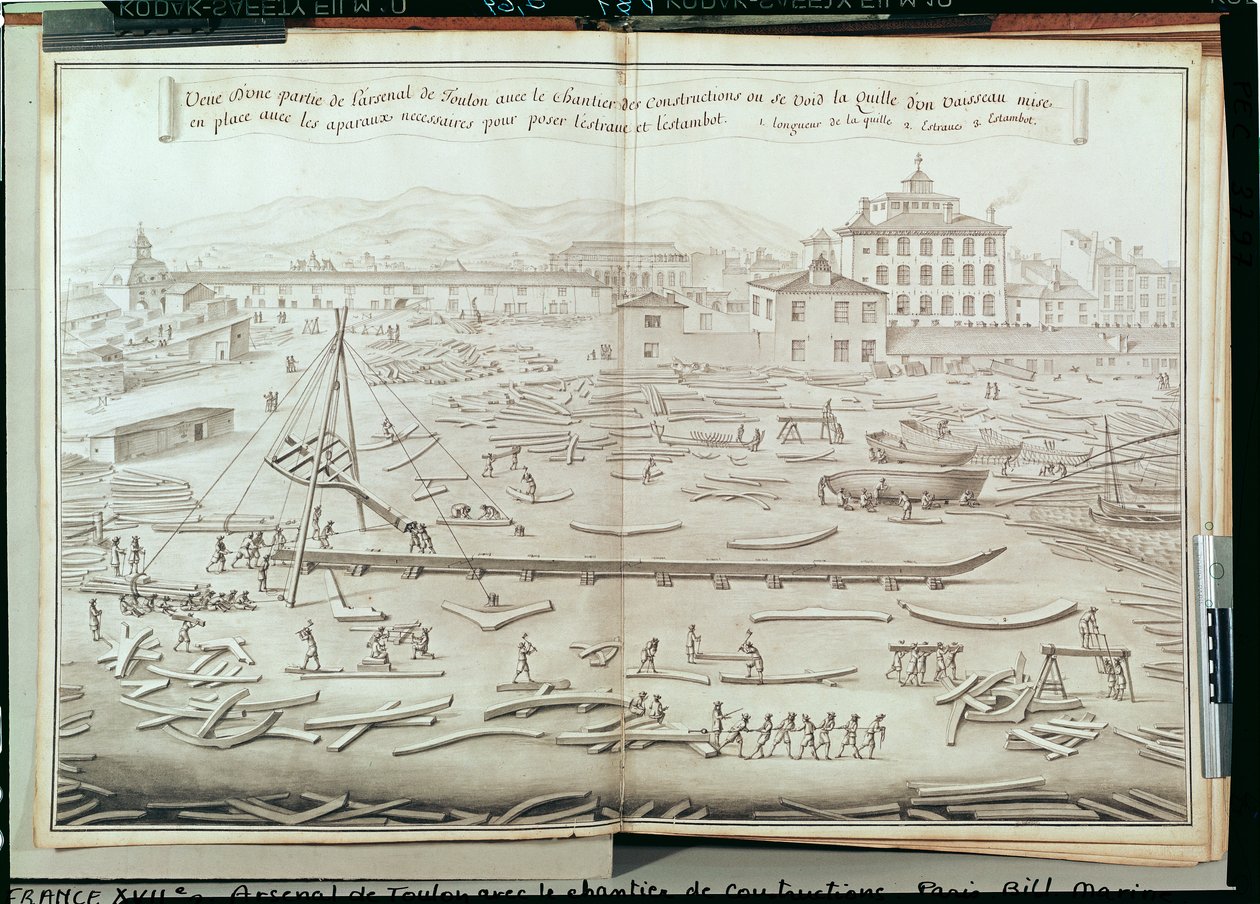 KODAK-SAFETY FILM
Veüe D'vne partie de L'arsenal de Toulon auec le Chantier des Constructions ou se void la Quille d'vn Vaisseau mise
en place auec les aparaux necessaires pour poser l'estraue et l'estambot. 1. longueur de la quille 2. Estraue 3. Estambot.
1.
2
FRANCE XVIIe Arsenal de Toulon avec le chantier de constructions Paris Bibl. Marine